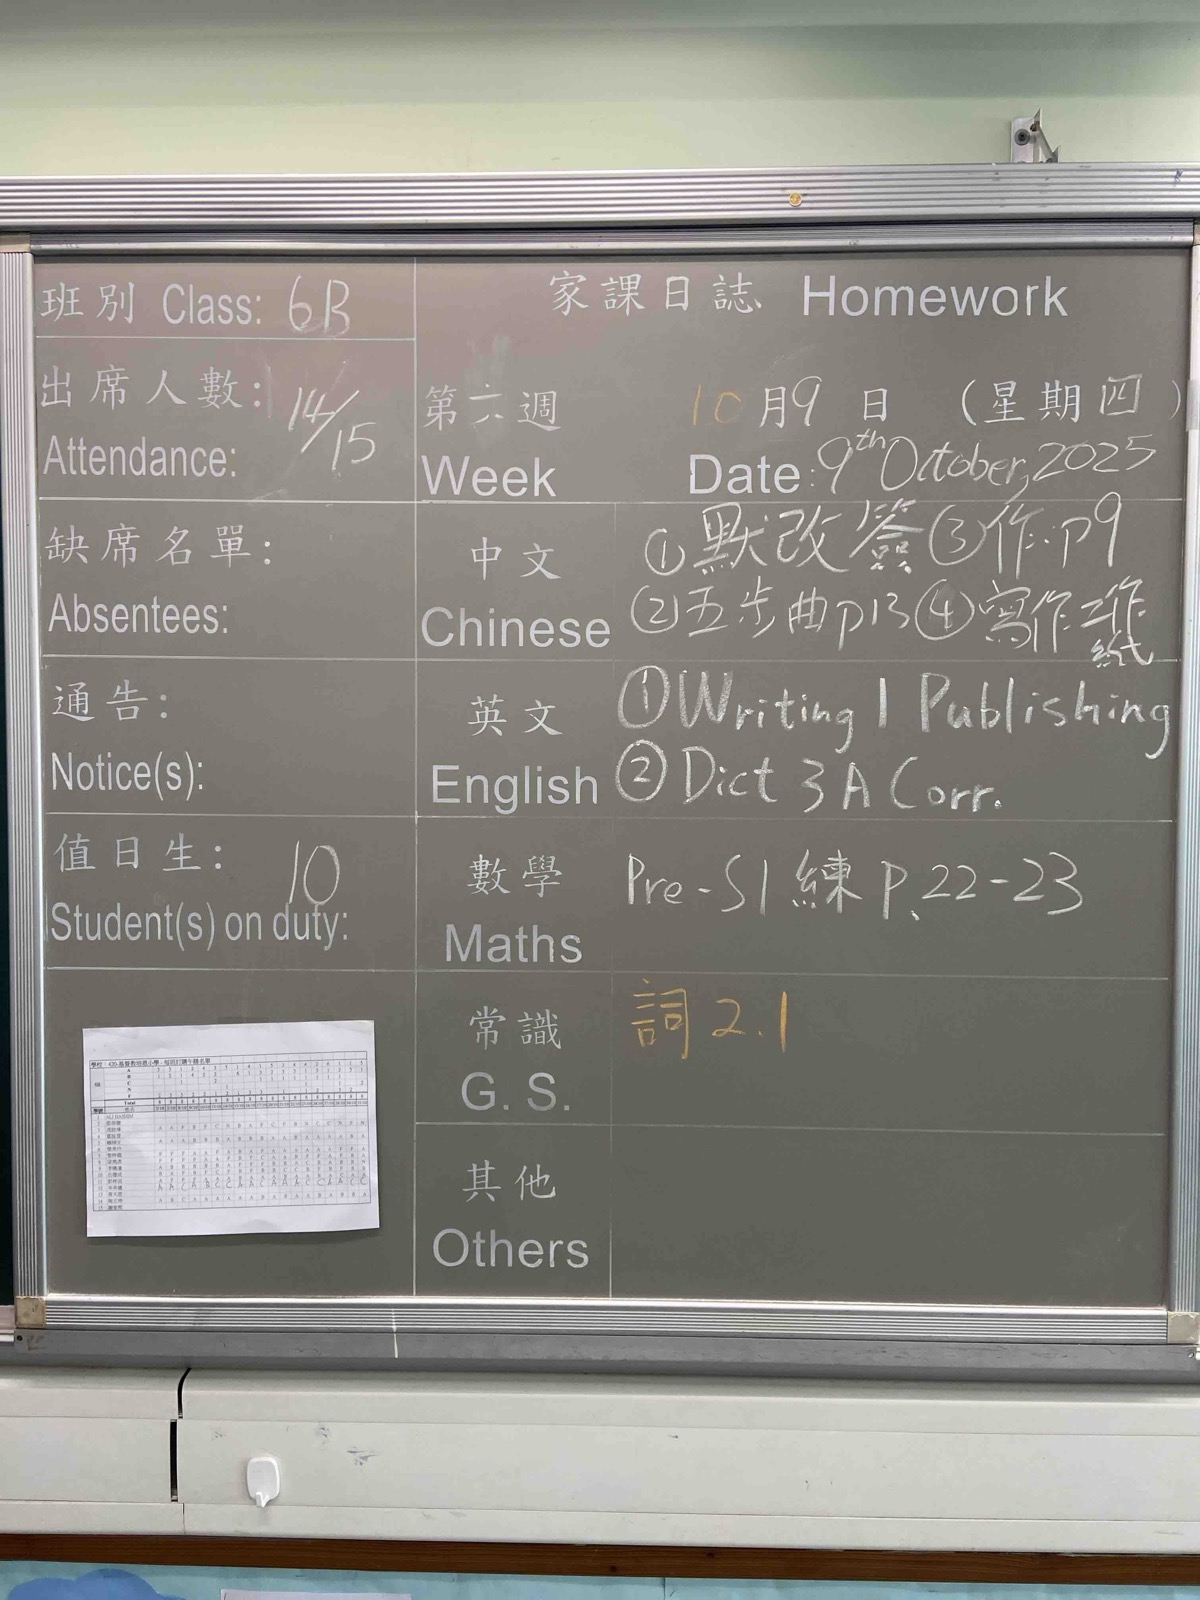 班別 Class: 6B
出席人數: 14/15
Attendance:
缺席名單:
Absentees:
通告:
Notice(s):
值日生: 10
Student(s) on duty:
家課日誌 Homework
第六週 10月9日 (星期四)
Week Date: 9th October, 2025
中文 ①默改簽 ③作:p9
Chinese ②五步曲p13 ④寫作工作紙
英文 ①Writing 1 Publishing
English ②Dict 3A Corr.
數學 Pre-S1 練 P.22-23
Maths
常識 詞 2.1
G. S.
其他
Others